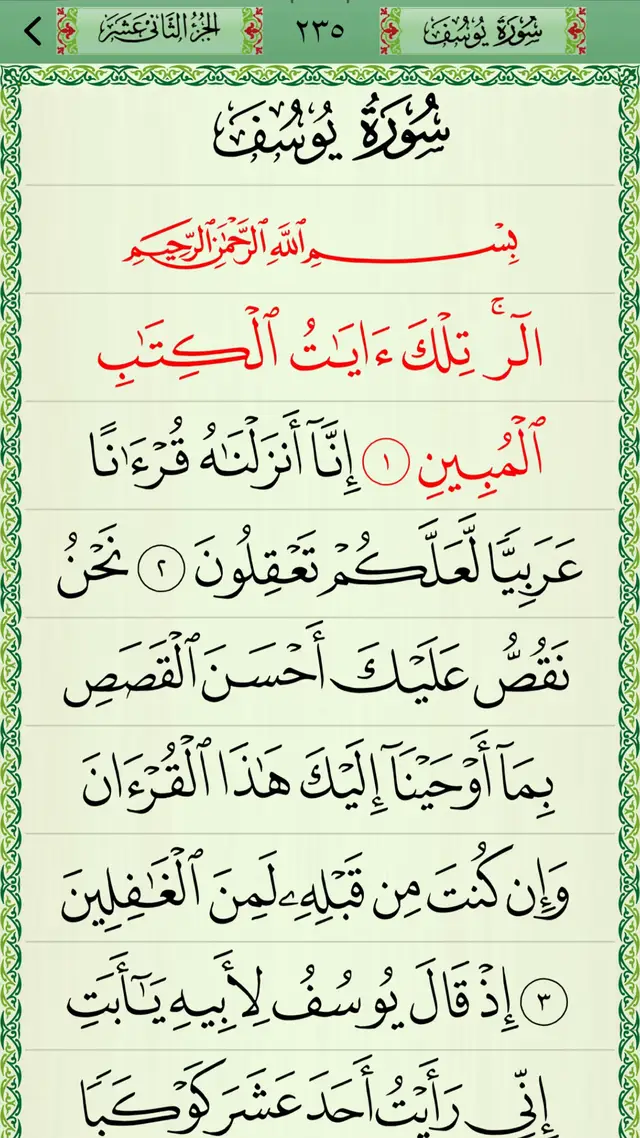 سُورَةُ يُوسُفَ ٢٣٥ الجُزْءُ الثَّانِي عَشَرَ
سُورَةُ يُوسُفَ
بِسْمِ ٱللَّهِ ٱلرَّحْمَٰنِ ٱلرَّحِيمِ
الٓرۚ تِلْكَ ءَايَٰتُ ٱلْكِتَٰبِ
ٱلْمُبِينِ ١ إِنَّآ أَنزَلْنَٰهُ قُرْءَٰنًا
عَرَبِيًّا لَّعَلَّكُمْ تَعْقِلُونَ ٢ نَحْنُ
نَقُصُّ عَلَيْكَ أَحْسَنَ ٱلْقَصَصِ
بِمَآ أَوْحَيْنَآ إِلَيْكَ هَٰذَا ٱلْقُرْءَانَ
وَإِن كُنتَ مِن قَبْلِهِۦ لَمِنَ ٱلْغَٰفِلِينَ
٣ إِذْ قَالَ يُوسُفُ لِأَبِيهِ يَٰٓأَبَتِ
إِنِّي رَأَيْتُ أَحَدَ عَشَرَ كَوْكَبًا